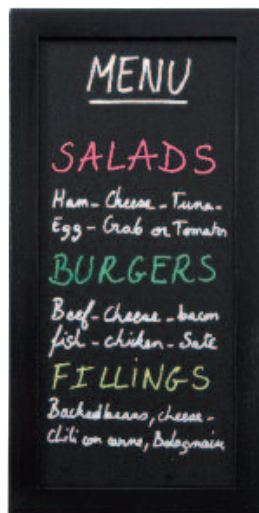 MENU
SALADS
Ham - Cheese - Tuna -
Egg - Crab or Tomato
BURGERS
Beef - Cheese - bacon
fish - chicken - Sate
FILLINGS
Backed beans, cheese -
chili con carne, Bolognaise